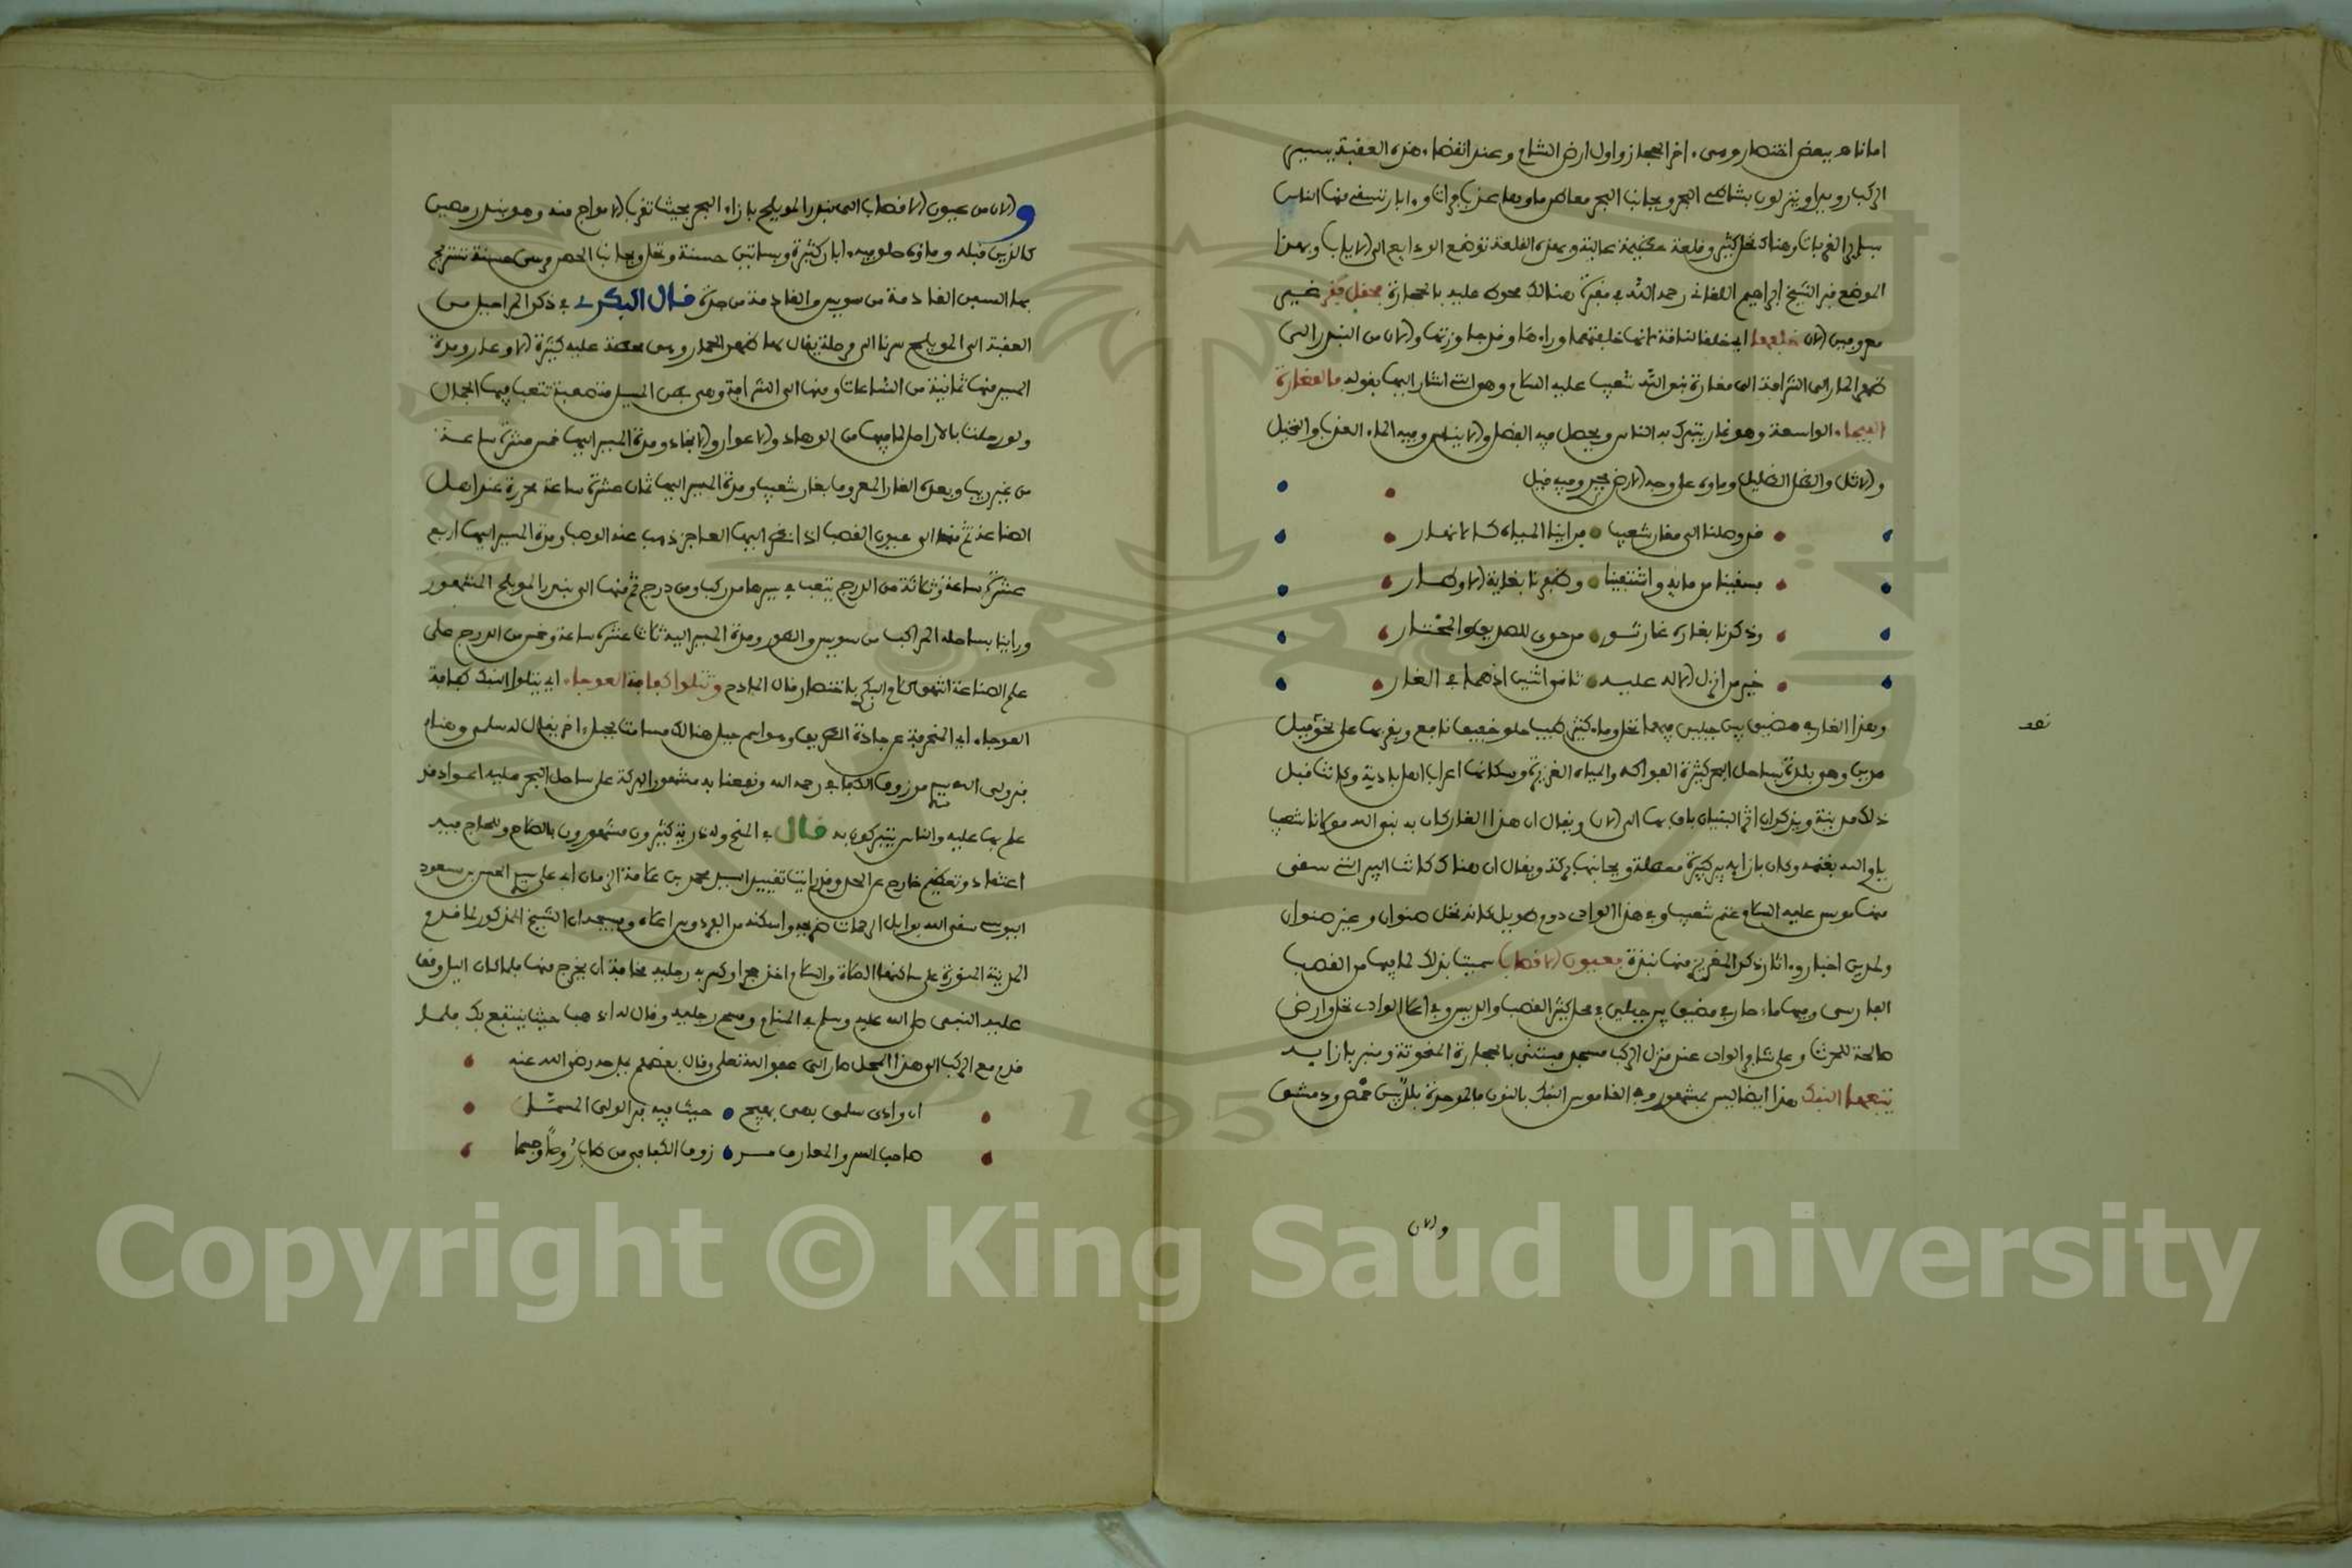 اماناه ببعض اختصار وهي اخر الحجاز واول ارض الشام وعند انقضاء هذه العقبة يسير
الركب رويدا وينزلون بشاطئ البحر وبجانب البحر معاطن ماوها عذب فرات وءابار تستقي منها الناس
وهناك نخل كثير وقلعة عظيمة عالية وبهذه القلعة توضع الودايع الى الاياب وبهذا
الموضع قبر الشيخ ابراهيم اللقاني رحمه الله في مقبرة هنالك محوط عليه بالحجارة
الان خلفها اي خلف الناقة لانها خلفتهما وراءها وقد جاوزتها والان من البندر الى
ظهر الحمار الى الشرافة الى مغارة نبي الله شعيب عليه السلام وهو الذي اشار اليها بقوله فالمغارة
الفيحاء الواسعة وهو غار يتبرك به الناس ويحصل فيه الفضل والايناس وفيه الماء العذب والنخيل
والاثل والظل الظليل وماوه على وجه الارض يجري وفيه قيل
قد وصلنا الى مغار شعيب فراينا المياه كالانهار
فسقينا من مايه واشتفينا وظفرنا بغاية الاوطار
وذكرنا بغاره غار ثور من حوى للصديق والمختار
خير من انزل الاله عليه ثاني اثنين اذ هما في الغار
وهذا الغار في مضيق بين جبلين فيهما نخل وماء كثير طيب حلو خفيف نافع وبقربها على نحو ميل
مدين وهو بلدة بساحل البحر كثيرة الفواكه والمياه الغزيرة وسكانها اعراب اهل بادية وكانت قبل
ذلك مدينة ويذكر ان اثر البنيان باق بها الى الان ويقال ان هذا الغار كان به نبي الله مولانا شعيب
ياوي اليه بغنمه وكان بازايه بير كبيرة معطلة وبجانبها بركة ويقال ان هناك كانت البير التي سقى
منها موسى عليه السلام غنم شعيب وفي هذا الوادي دوم طويل كانه نخل صنوان وغير صنوان
ولمدين اخبار وءاثار ذكر المقريزي منها نبذة فعيون الاقصاب سميت بذلك لما فيها من القصب
الفارسي وفيها ماء جار في مضيق بين جبلين في محل كثير القصب والديس وفي اعلا الوادي نخل وارض
صالحة للحرث وعلى شاطئ الوادي عند منزل الركب مسجد مبتنى بالحجارة المنحوتة وقبر بازايه
يتبعها النبك هذا ايضا ليس بمشهور وفي القاموس النبك بالنون فالموحدة بلد بين حمص ودمشق
والان
والان من عيون الاقصاب الى بندر المويلح بازاء البحر بحيث تقرب الامواج منه وهو بندر حصين
كالذين قبله وماؤه حلو فيه ءابار كثيرة وبساتين حسنة ونخل وبجانب الحصر مرسى حسنة تستريح
بها السفن القادمة من سويس والقادمة من جدة قال البكري في ذكر المراحل من
العقبة الى المويلح سرنا الى مرحلة يقال لها ظهر الحمار وهي صعبة عليه كثيرة الاوعار ومدة
المسير منها ثمانية من الساعات ومنها الى الشرافة وهي بعض المسير منه صعبة تتعب فيها الجمال
ولو رحلنا بالاراحل لما فيها من الوهاد والاغوار والانجاد ومدة المسير اليها خمس عشرة ساعة
من غير ريب وبعده الغار المعروف بغار شعيب ومدة المسير اليها ثمان عشرة ساعة محررة عند اهل
الصناعة ثم منها الى عيون القصب اذا نظر اليها العاجز ذهب عنه الوصب ومدة المسير اليها اربع
عشرة ساعة وثلاثة من الدرج يتعب في سيرها من ركب ومن درج ثم منها الى بندر المويلح المشهور
وراينا بساحله المراكب من سويس والطور ومدة المسير اليه ثلاث عشرة ساعة وخمس من الدرج على
علم الصناعة انتهى كلام البكري باختصار قال الخادم وتتلوا كفافة العوجاء اي يتلوا النبك كفافة
العوجاء اي المنحرفة عن جادة الطريق وهو اسم جبل هنالك مسامت بجبل ءاخر يقال له سلمى وهناك
قبر ولي الله سيدي مرزوق الكفافي رحمه الله ونفعنا به مشهور البركة على ساحل البحر عليه اعواد قد
علم بها عليه والناس يتبركون به قال في المنح وله ذرية كثيرون مشهورون بالصلاح وللحاج فيه
اعتقاد وتعظيم خارج عن الحد وقد رايت تقييد السيد محمد بن علامة الزمان ابي علي سيدي الحسن بن مسعود
اليوسي سقى الله بوابل الرحمات ضريحه واسكنه من الفردوس اعلاه وفسيحه ان الشيخ المذكور لما قدم
المدينة المنورة على ساكنها الصلاة والسلام اخذ حجرا وكسر به رجليه مخافة ان يخرج منها فلما كان الليل وقف
عليه النبي صلى الله عليه وسلم في المنام ومسح رجليه وقال له اذهب حيث ينتفع بك فلما
قدم مع الركب الى هذا المحل صار الى عفو الله تعالى وقال بعضهم يمدحه رضي الله عنه
ان وادي سلمى بهي بهيج حيث فيه قبر الولي المسمى
صاحب السر والمعارف مرزوق الكفافي من طاب روحا وجسما